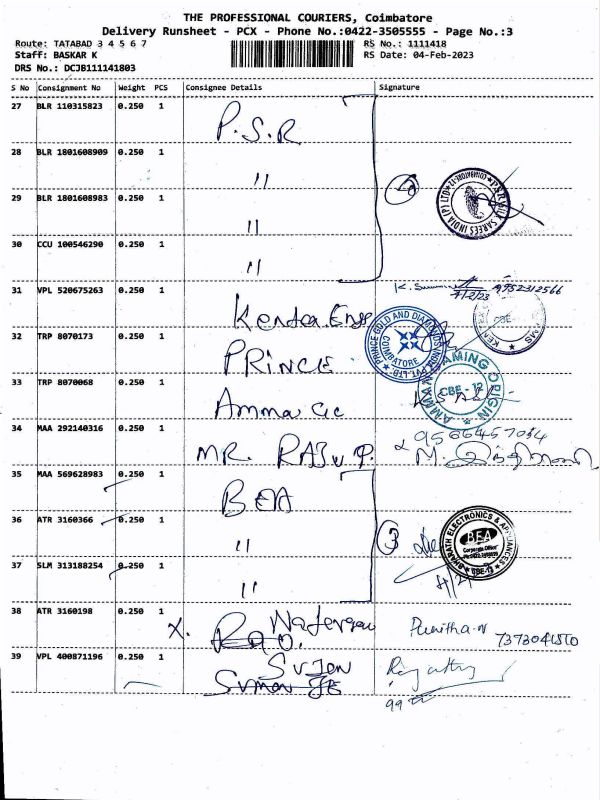 THE PROFESSIONAL COURIERS, Coimbatore
Delivery Runsheet - PCX - Phone No.:0422-3505555 - Page No.:3
Route: TATABAD 3 4 5 6 7
RS No.: 1111418
Staff: BASKAR K
RS Date: 04-Feb-2023
DRS No.: DCJB111141803
S No Consignment No Weight PCS Consignee Details Signature
27 BLR 110315823 0.250 1 P.S.R
28 BLR 1801608909 0.250 1 "
29 BLR 1801608983 0.250 1 "
30 CCU 100546290 0.250 1 "
31 VPL 520675263 0.250 1 Kendra. Engg 9952312566
32 TRP 8070173 0.250 1 PRINCE PRINCE GOLD AND DIAMONDS INDIA PVT. LTD. COIMBATORE
33 TRP 8070068 0.250 1 Amma CBE - 12
34 MAA 292140316 0.250 1 MR. RAJU P. 9566457034
35 MAA 569628983 0.250 1 BEA
36 ATR 3160366 0.250 1 " 3 BHARATH ELECTRONICS & APPLIANCES BEA
37 SLM 313188254 0.250 1 "
38 ATR 3160198 0.250 1 X. Punitha-N
39 VPL 400871196 0.250 1